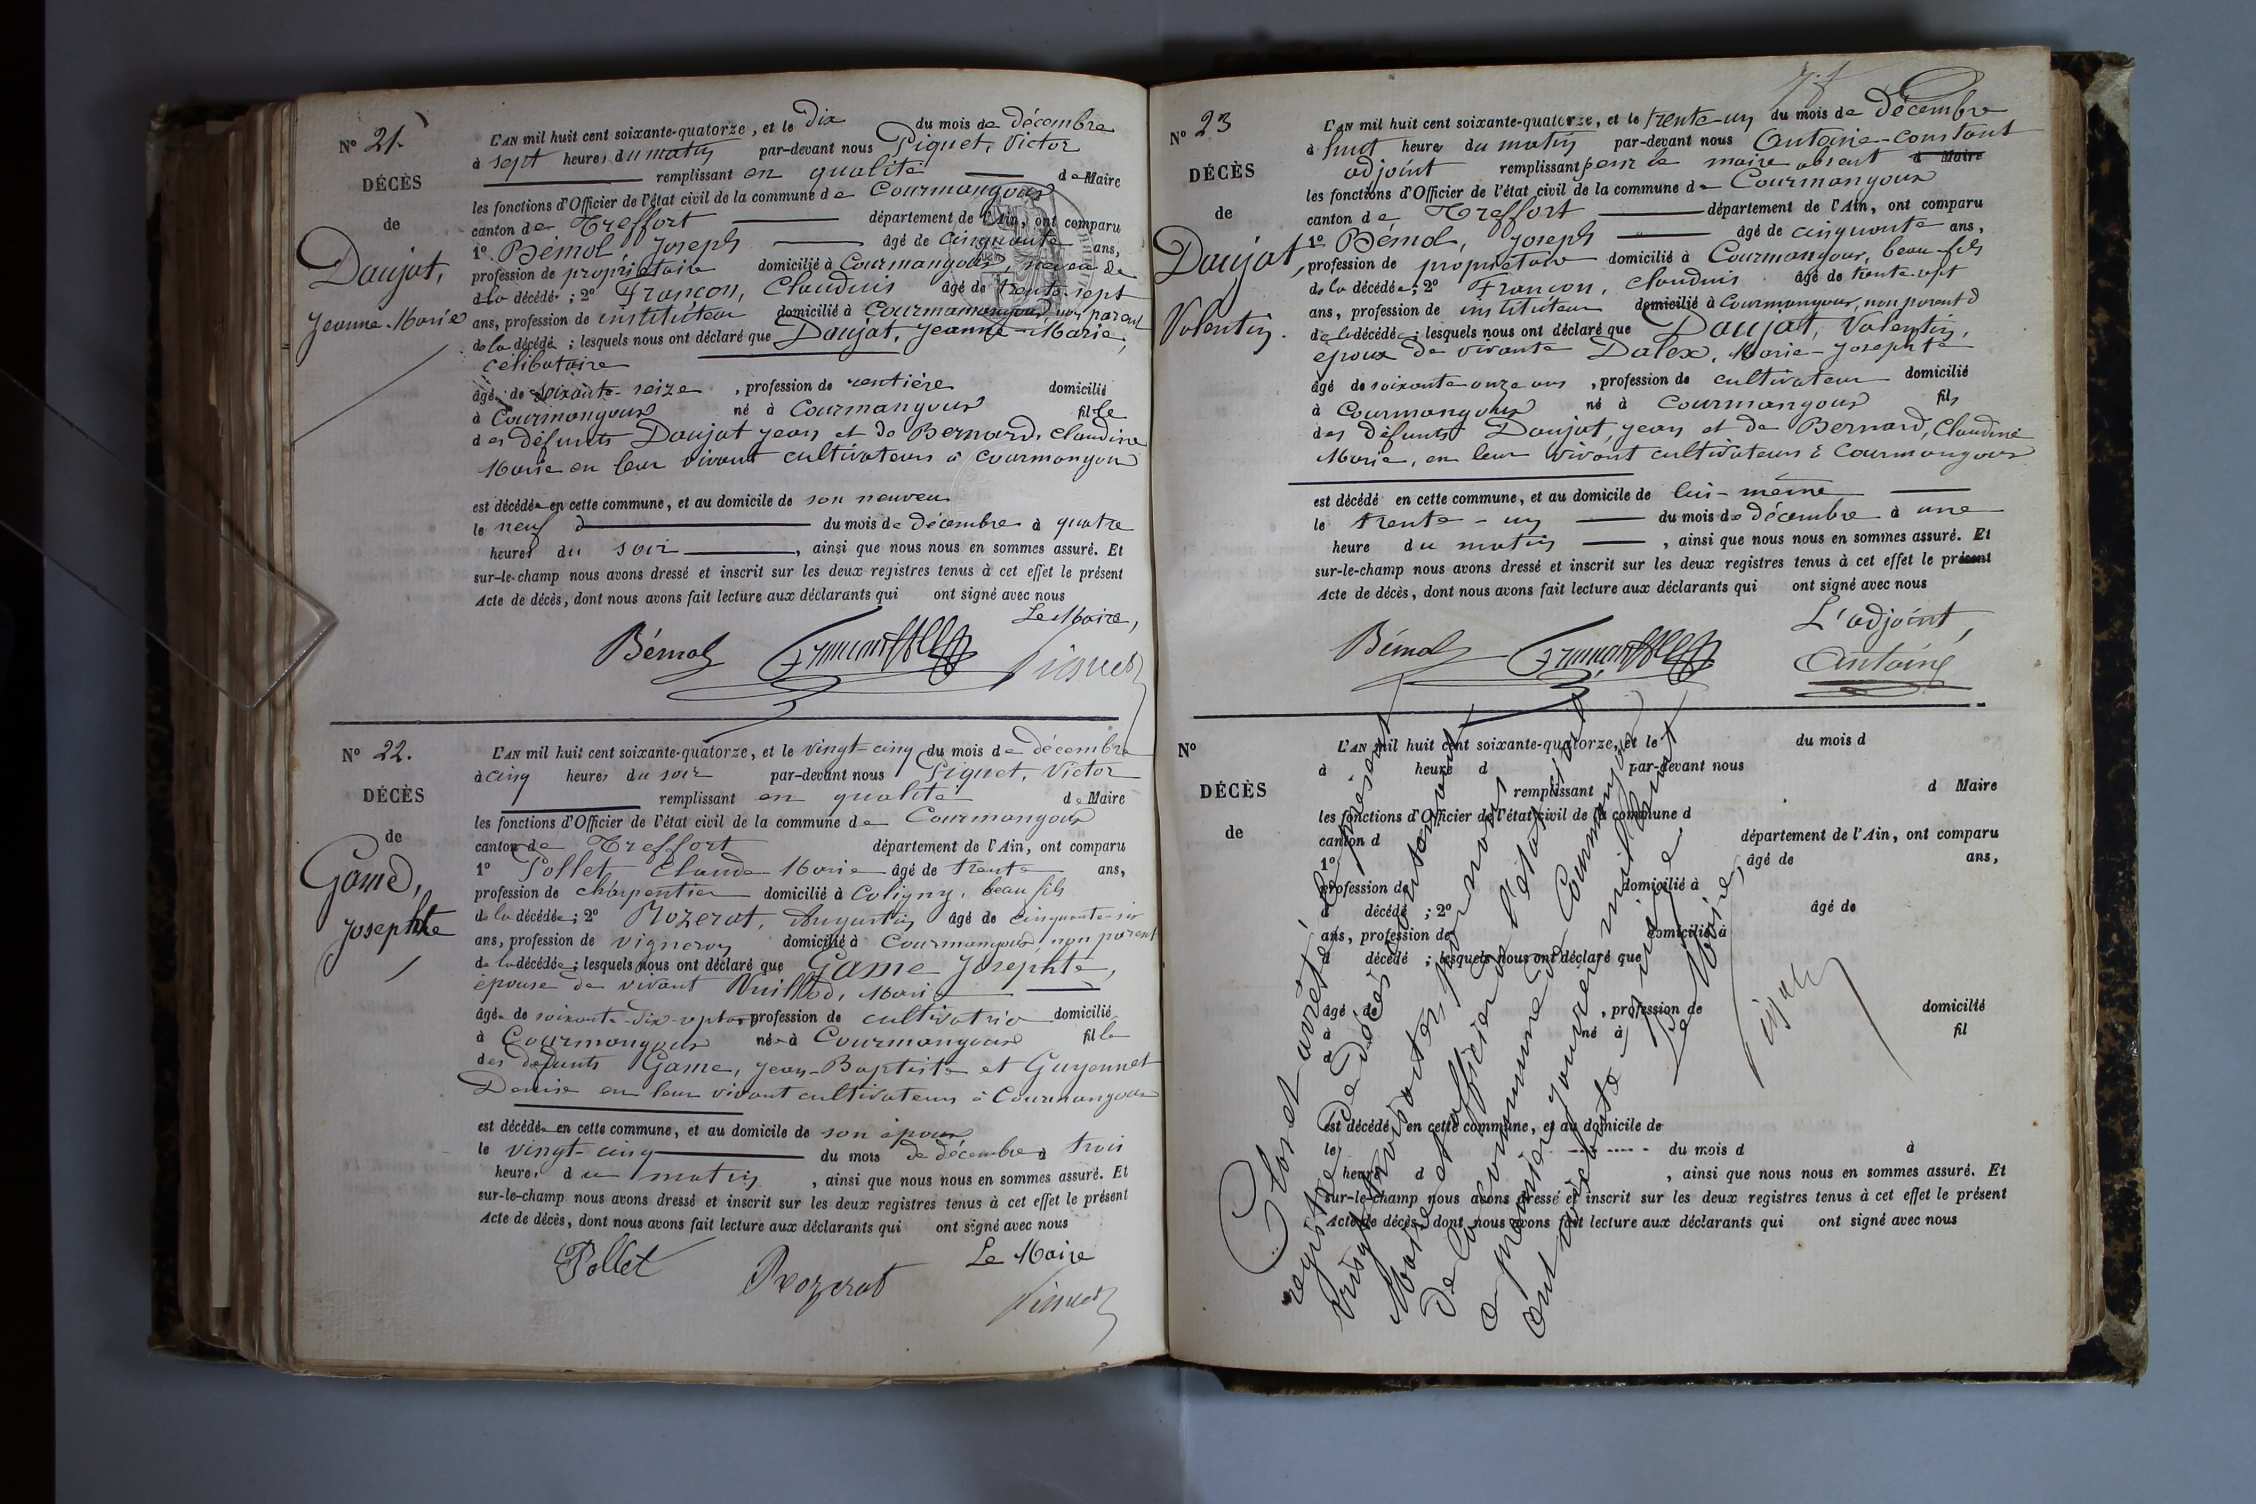 N° 21.
DÉCÈS
de
Daujat,
Jeanne-Marie
L'AN mil huit cent soixante-quatorze, et le dix du mois de décembre
à sept heures du matin par-devant nous Piquet, Victor
remplissant en qualité de Maire
les fonctions d'Officier de l'état civil de la commune de Courmangoux
canton de Treffort département de l'Ain, ont comparu
1° Bémol, Joseph âgé de cinquante ans,
profession de propriétaire domicilié à Courmangoux neveu de
de la décédée ; 2° Francon, Claudius âgé de trente-sept
ans, profession de instituteur domicilié à Courmamangoux, non parent
de la décédé ; lesquels nous ont déclaré que Daujat, Jeanne-Marie,
célibataire
âgée de soixante-seize , profession de rentière domicilié
à Courmangoux né à Courmangoux fille
des défunts Daujat Jean et de Bernard, Claudine
Marie en leur vivant cultivateurs à Courmangoux
est décédée en cette commune, et au domicile de son neuveu
le neuf d du mois de décembre à quatre
heures du soir , ainsi que nous nous en sommes assuré. Et
sur-le-champ nous avons dressé et inscrit sur les deux registres tenus à cet effet le présent
Acte de décès, dont nous avons fait lecture aux déclarants qui ont signé avec nous
Le Maire,
Bémol Francon Piquet
N° 22.
DÉCÈS
de
Game,
Josephte
L'AN mil huit cent soixante-quatorze, et le vingt-cinq du mois de décembre
à cinq heures du soir par-devant nous Piquet, Victor
remplissant en qualité de Maire
les fonctions d'Officier de l'état civil de la commune de Courmangoux
canton de Treffort département de l'Ain, ont comparu
1° Pollet Claude Marie âgé de trente ans,
profession de charpentier domicilié à Coligny, beau fils
de la décédée ; 2° Rozerat, Augustin âgé de cinquante-six
ans, profession de vigneron domicilié à Courmangoux, non parent
de la décédée ; lesquels nous ont déclaré que Game Josephte,
épouse de vivant Vuillod, Marie
âgée de soixante-dix-sept ans profession de cultivatrice domicilié
à Courmangoux née à Courmangoux fille
des défunts Game, Jean-Baptiste et Guyennet
Denise en leur vivant cultivateurs à Courmangoux
est décédée en cette commune, et au domicile de son époux
le vingt-cinq du mois de décembre à trois
heures du matin , ainsi que nous nous en sommes assuré. Et
sur-le-champ nous avons dressé et inscrit sur les deux registres tenus à cet effet le présent
Acte de décès, dont nous avons fait lecture aux déclarants qui ont signé avec nous
Le Maire
Pollet Rozerat Piquet
N° 23
DÉCÈS
de
Daujat,
Valentin.
L'AN mil huit cent soixante-quatorze, et le trente-un du mois de décembre
à huit heures du matin par-devant nous Antoine-Constant
adjoint remplissant pour le maire absent d Maire
les fonctions d'Officier de l'état civil de la commune de Courmangoux
canton de Treffort département de l'Ain, ont comparu
1° Bémol, Joseph âgé de cinquante ans,
profession de propriétaire domicilié à Courmangoux, beau-fils
de la décédée ; 2° Francon, Claudius âgé de trente-sept
ans, profession de instituteur domicilié à Courmangoux, non parent d
de le décédé ; lesquels nous ont déclaré que Daujat, Valentin,
époux de vivante Dalex, Marie-Josephte
âgé de soixante onze ans , profession de cultivateur domicilié
à Courmangoux né à Courmangoux fils
des défunts Daujat, Jean et de Bernard, Claudine
Marie, en leur vivant cultivateurs à Courmangoux
est décédé en cette commune, et au domicile de lui-même
le trente-un du mois de décembre à une
heure du matin , ainsi que nous nous en sommes assuré. Et
sur-le-champ nous avons dressé et inscrit sur les deux registres tenus à cet effet le présent
Acte de décès, dont nous avons fait lecture aux déclarants qui ont signé avec nous
L'adjoint,
Bémol Francon Antoine
N°
DÉCÈS
de
L'AN mil huit cent soixante-quatorze, et le du mois d
à heure d par-devant nous
remplissant d Maire
les fonctions d'Officier de l'état civil de la commune d
canton d département de l'Ain, ont comparu
1° âgé de ans,
profession de domicilié à
d décédé ; 2° âgé de
ans, profession de domicilié à
d décédé ; lesquels nous ont déclaré que
âgé de , profession de domicilié
à né à fil
d
est décédé en cette commune, et au domicile de
le du mois d à
heure d , ainsi que nous nous en sommes assuré. Et
sur-le-champ nous avons dressé et inscrit sur les deux registres tenus à cet effet le présent
Acte de décès, dont nous avons fait lecture aux déclarants qui ont signé avec nous
Clos et arrêté le présent
registre de décès contenant
vingt-trois actes par nous
Maire et officier de l'état civil
de la commune de Courmangoux
ce premier janvier mil huit
cent soixante-quinze
Le Maire,
Piquet